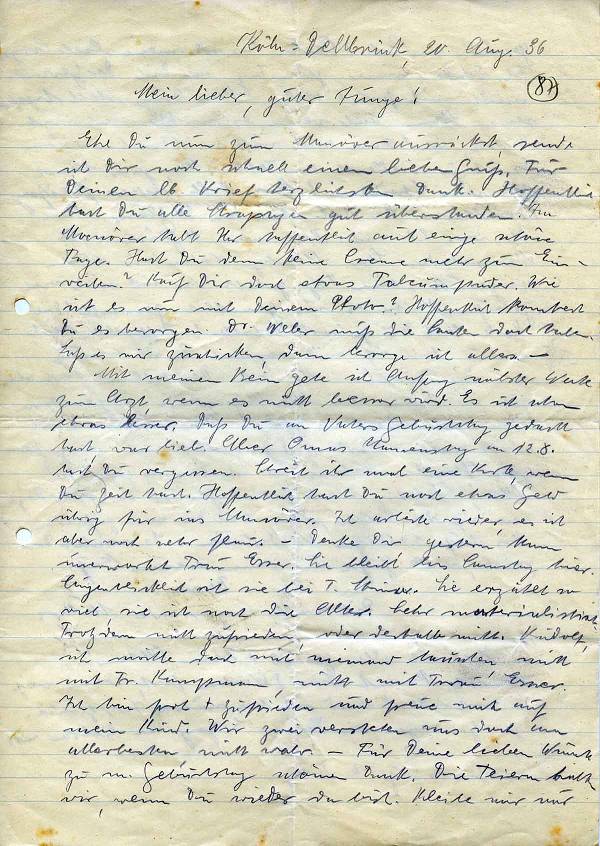 Köln-Dellbrück, 20. Aug. 36
(87)
Mein lieber, guter Junge!
Ehe Du nun zum Manöver ausrückst, sende
ich Dir noch schnell einen lieben Gruß. Für
Deinen lb. Brief herzlichsten Dank. Hoffentlich
hast Du alle Strapazen gut überstanden. Im
Manöver habt Ihr hoffentlich auch einige schöne
Tage. Hast Du denn keine Creme mehr zum Ein-
reiben? Kauf Dir doch etwas Talcumpuder. Wie
ist es nun mit Deinem Photo? Hoffentlich konntest
Du es besorgen. Dr. Weler muß die doch haben.
Laß es mir zuschicken, dann besorge ich alles. —
Mit meinem Bein gehe ich Anfang nächster Woche
zum Arzt, wenn es nicht besser wird. Es ist schon
etwas besser. Daß Du an Vaters Geburtstag gedacht
hast, war lieb. Aber Omas Namenstag am 12.8.
hast Du vergessen. Schreib ihr mal eine Karte, wenn
Du Zeit hast. Hoffentlich hast Du noch etwas Geld
übrig für ins Manöver. Ich arbeite wieder, es ist
aber noch sehr flau. — Denke Dir gestern kam
unerwartet Frau Esser. Sie bleibt bis Samstag hier.
Augenblicklich ist sie bei T. Sie erzählt so
viel, sie ist noch die Alte. Sehr materialistisch.
Trotzdem nicht zufrieden, oder deshalb nicht. Rudolf,
ich möchte doch mit niemand tauschen, nicht
mit Fr. Kauffmann nicht mit Frau Esser.
Ich bin froh + zufrieden und freue mich auf
mein Kind. Wir zwei verstehen uns doch am
allerbesten nicht wahr. — Für Deine lieben Wünsche
zu m. Geburtstag schönen Dank. Die Feiern halten
wir, wenn Du wieder da bist. Bleibe mir nur